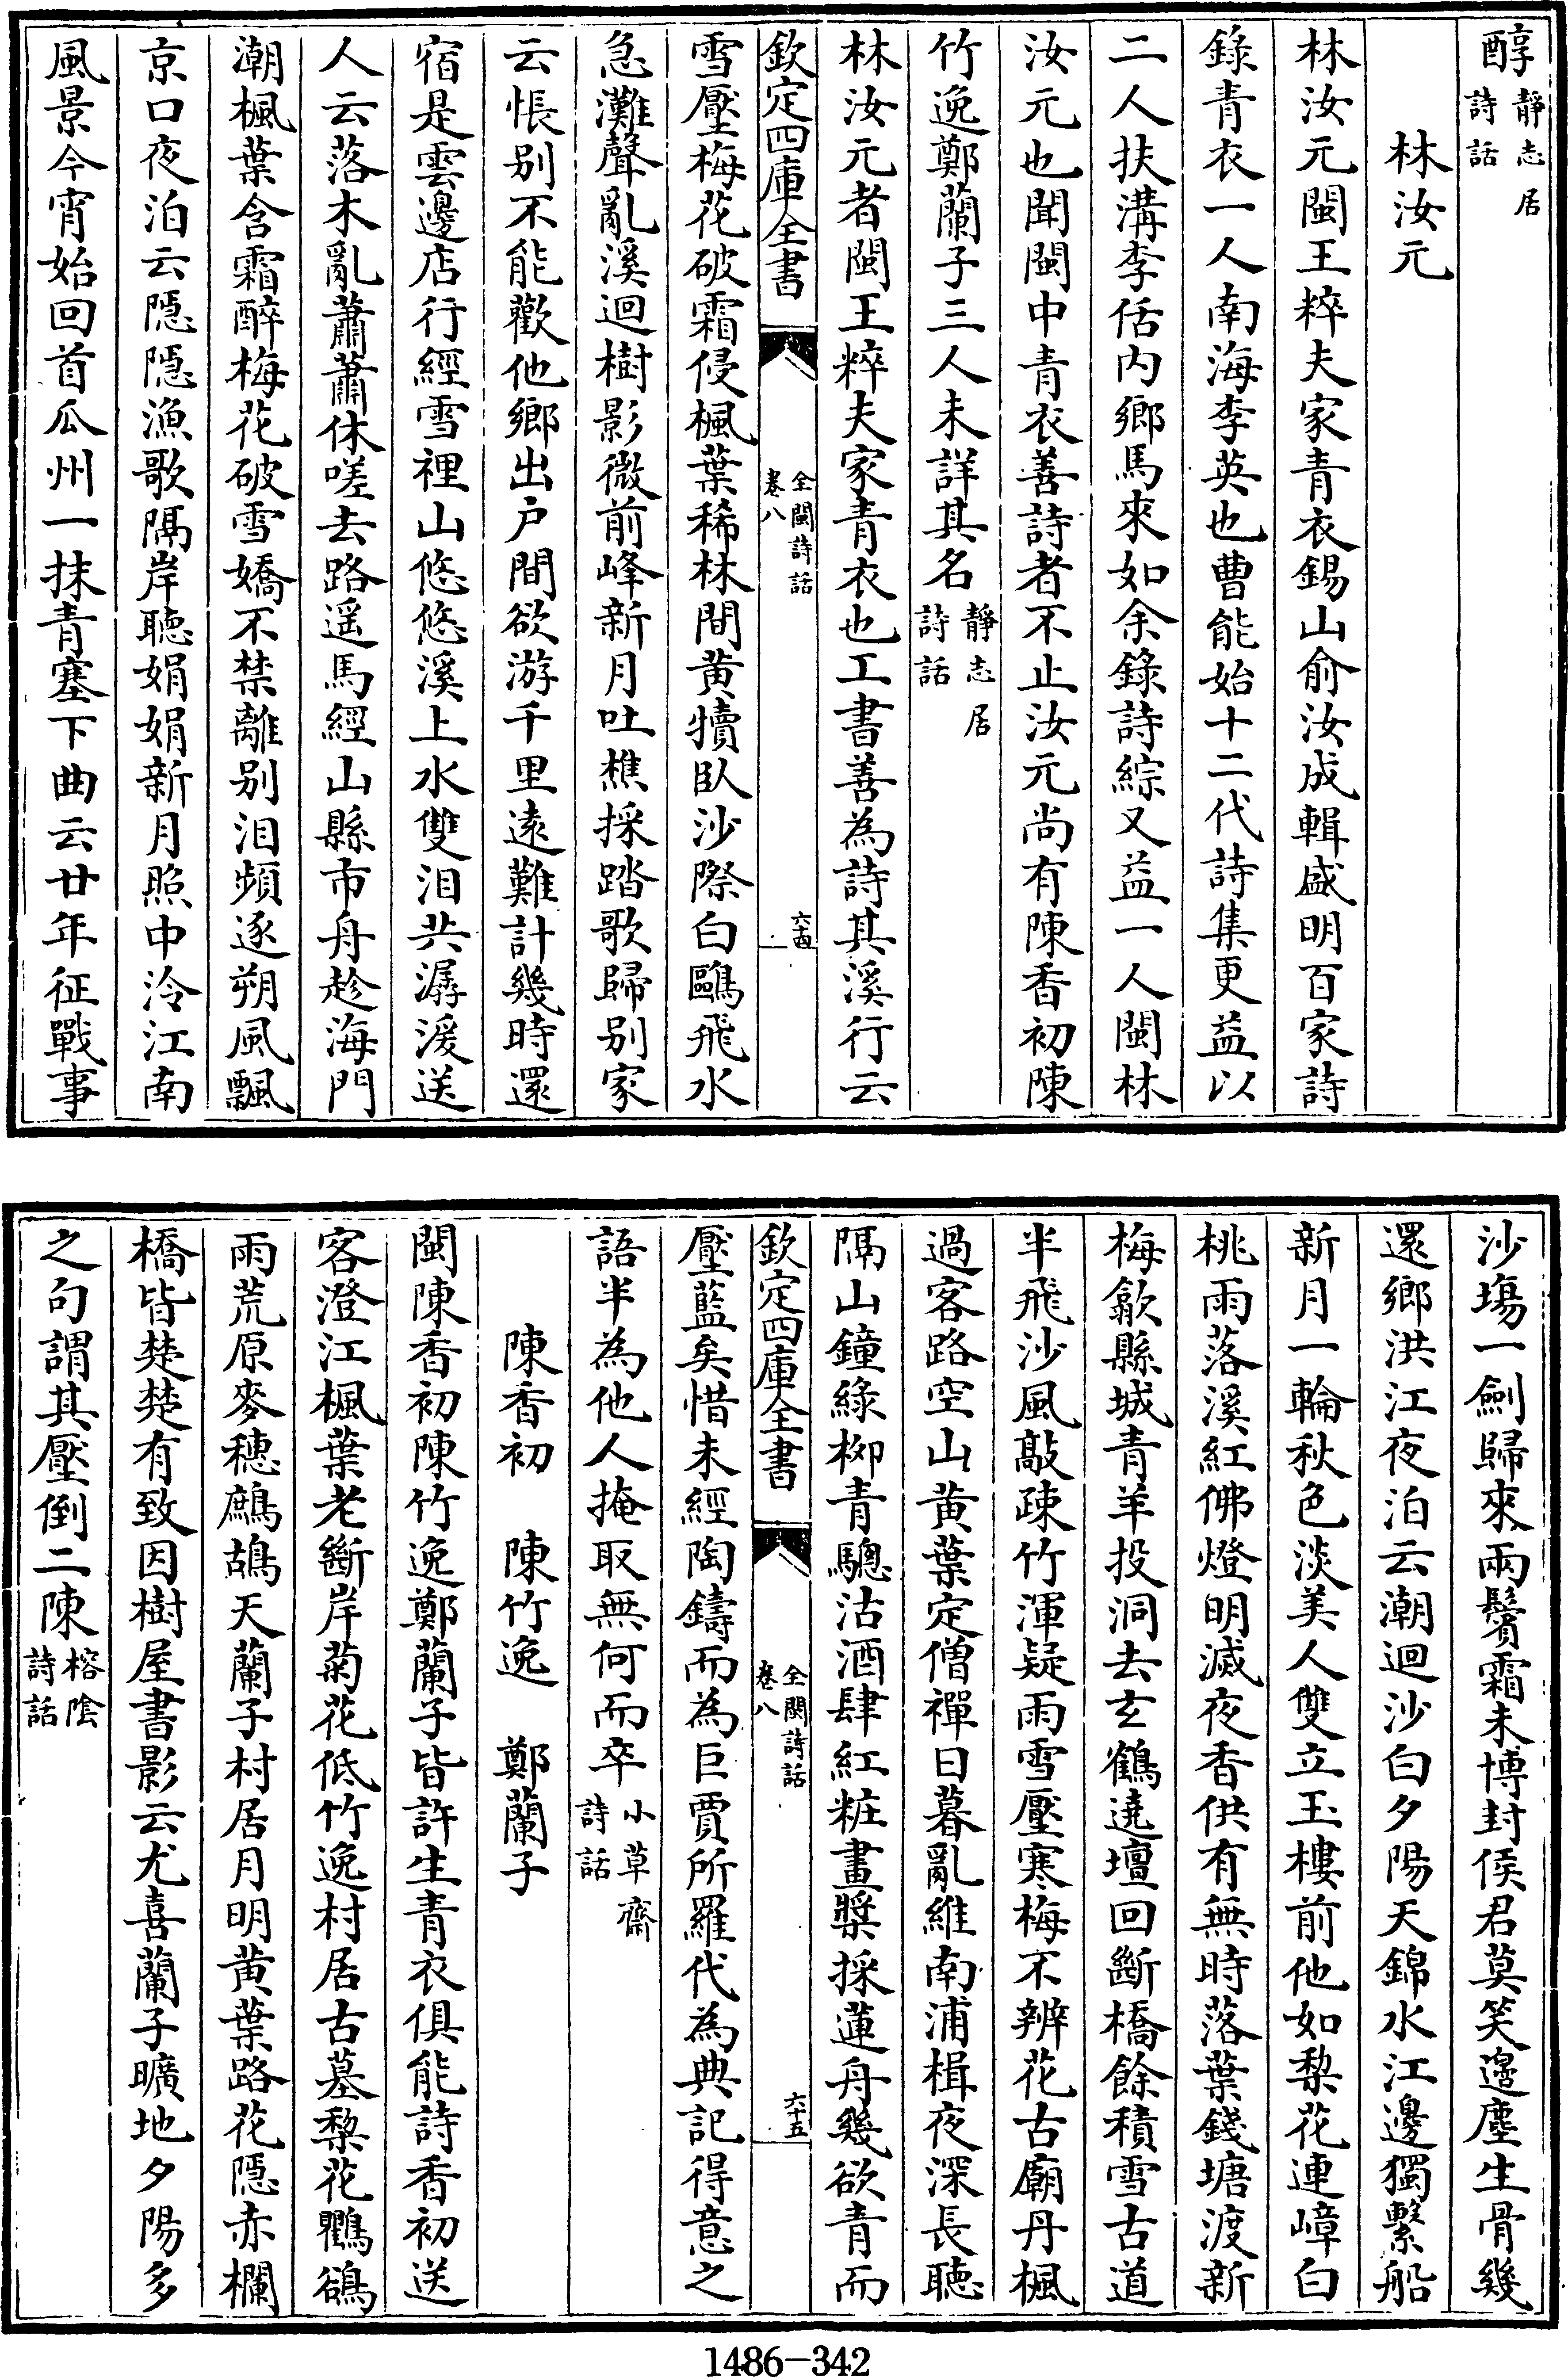 醇靜志居詩話
林汝元
林汝元閩王粹夫家青衣錫山俞汝成輯盛明百家詩
錄青衣一人南海李英也曹能始十二代詩集更益以
二人扶溝李佸內鄉馬來如余錄詩綜又益一人閩林
汝元也聞閩中青衣善詩者不止汝元尚有陳香初陳
竹逸鄭蘭子三人未詳其名靜志居詩話
林汝元者閩王粹夫家青衣也工書善為詩其溪行云
欽定四庫全書
全閩詩話
卷八
六十四
雪壓梅花破霜侵楓葉稀林間黃犢臥沙際白鷗飛水
急灘聲亂溪迴樹影微前峰新月吐樵採踏歌歸别家
云悵别不能歡他鄉出戶間欲游千里遠難計幾時還
宿是雲邊店行經雪裡山悠悠溪上水雙泪共潺湲送
人云落木亂蕭蕭休嗟去路遥馬經山縣市舟趁海門
潮楓葉含霜醉梅花破雪嬌不禁離别泪頻逐朔風飄
京口夜泊云隠隠漁歌隔岸聴娟娟新月照中泠江南
風景今宵始回首瓜州一抹青塞下曲云廿年征戰事
沙塲一劍歸來兩鬢霜未博封侯君莫笑邉塵生骨幾
還鄉洪江夜泊云潮迴沙白夕陽天錦水江邊獨繫船
新月一輪秋色淡美人雙立玉樓前他如梨花連嶂白
桃雨落溪紅佛燈明滅夜香供有無時落葉錢塘渡新
梅歙縣城青羊投洞去玄鶴遶壇回斷橋餘積雪古道
半飛沙風敲疎竹渾疑雨雪壓寒梅不辨花古廟丹楓
過客路空山黃葉定僧禪日暮亂維南浦楫夜深長聴
隔山鐘綠柳青驄沽酒肆紅粧畫槳採蓮舟幾欲青而
欽定四庫全書
全閩詩話
卷八
六十五
壓藍矣惜未經陶鑄而為巨賈所羅代為典記得意之
語半為他人掩取無何而卒小草齋詩話
陳香初　陳竹逸　鄭蘭子
閩陳香初陳竹逸鄭蘭子皆許生青衣俱能詩香初送
客澄江楓葉老斷岸菊花低竹逸村居古墓梨花鸜鵒
雨荒原麥穗鷓鴣天蘭子村居月明黃葉路花隠赤欄
橋皆楚楚有致因樹屋書影云尤喜蘭子曠地夕陽多
之句謂其壓倒二陳榕陰詩話
1486-342